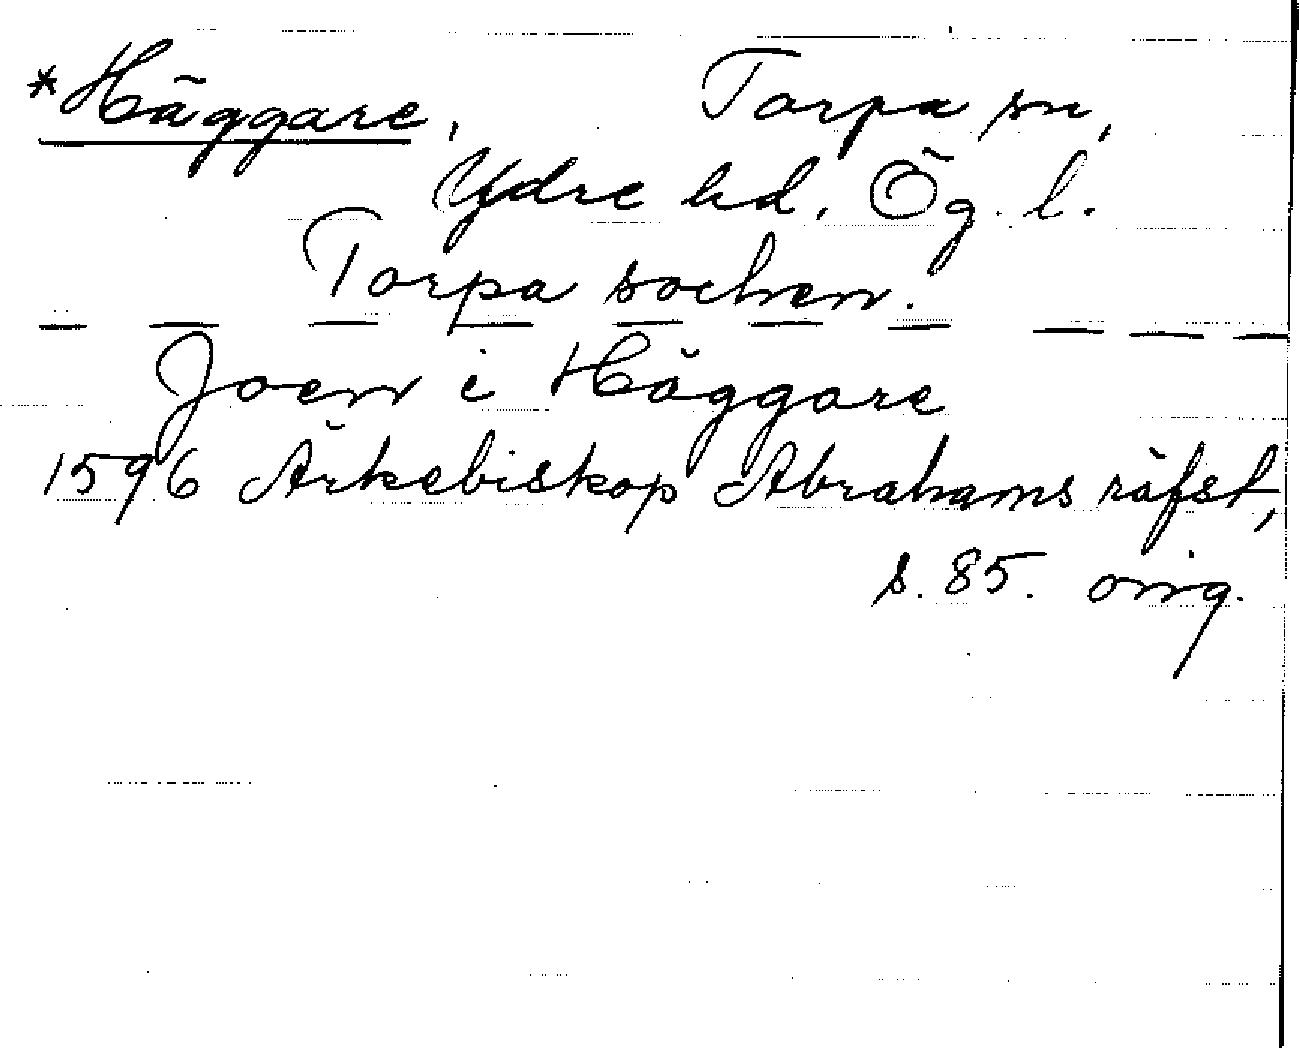 *Häggare, Torpa sn,
Ydre hd, Ög. l.
Torpa sochen.
Joen i Häggare
1596 Ärkebiskop Abrahams räfst,
s. 85. orig.